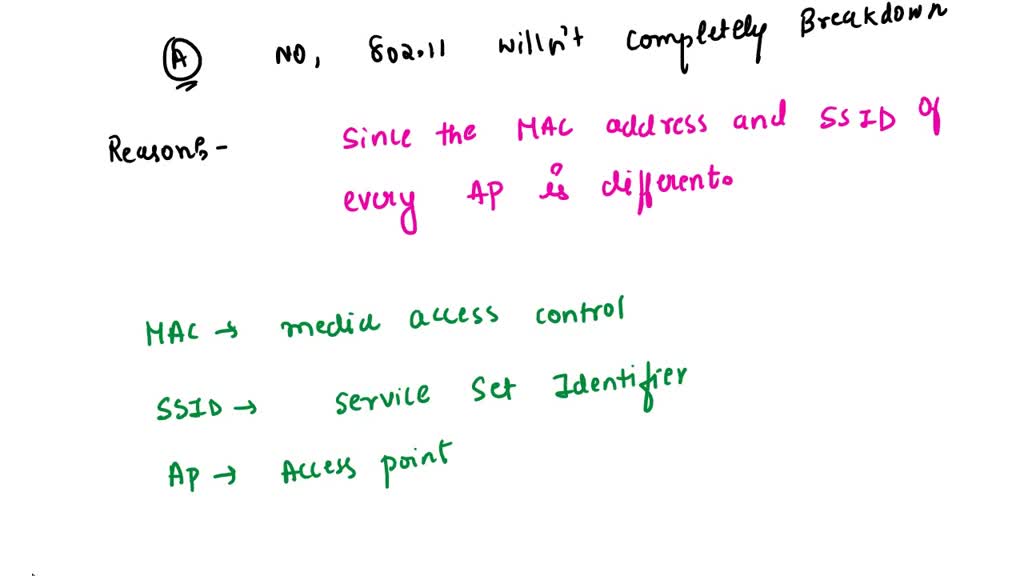 A NO, 802.11 willn't completely Breakdown
Reasons - Since the MAC address and SSID of
every AP is different.
MAC → media access control
SSID → Service Set Identifier
AP → Access point